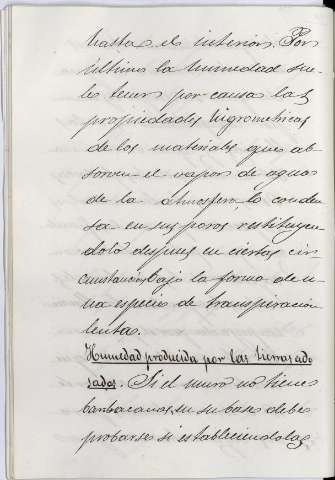 hasta el interior. Por
último la humedad sue-
le tener por causa las
propiedades higrométricas
de los materiales que ab-
sorven el vapor de agua
de la atmosfera, lo conden
sa en sus poros restituyen
dolo despues en ciertas cir-
cunstancias bajo la forma de u-
na especie de transpiración
lenta.
Humedad producida por las tierras ado
sadas. Si el muro no tiene
barbacanas en su base debe
probarse si estableciendolas